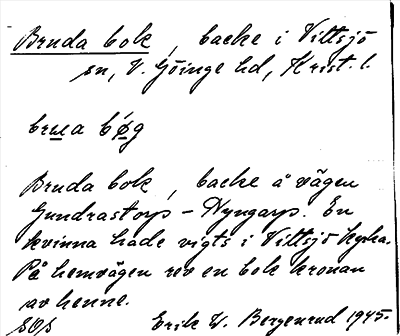 Bruda bok, backe i Vittsjö
sn, V. Göinge hd, Krist. l.
brua bǿg
Bruda bok, backe å vägen
Gundrastorp - Nyngarp. En
kvinna hade vigts i Vittsjö kyrka.
På hemvägen rev en bok kronan
av henne.
Erik W. Bergenrud 1945.